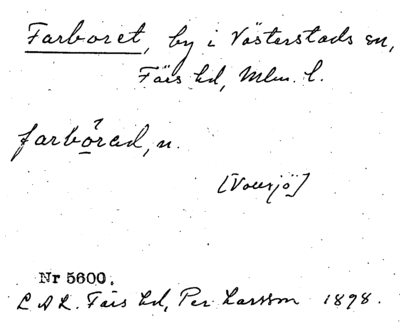 Farboret, by i Västerstads sn,
Färs hd, Mlm. l.
farbörad, n.
[Vollsjö]
Nr 5600.
L A L. Färs hd, Per Larsson 1898.